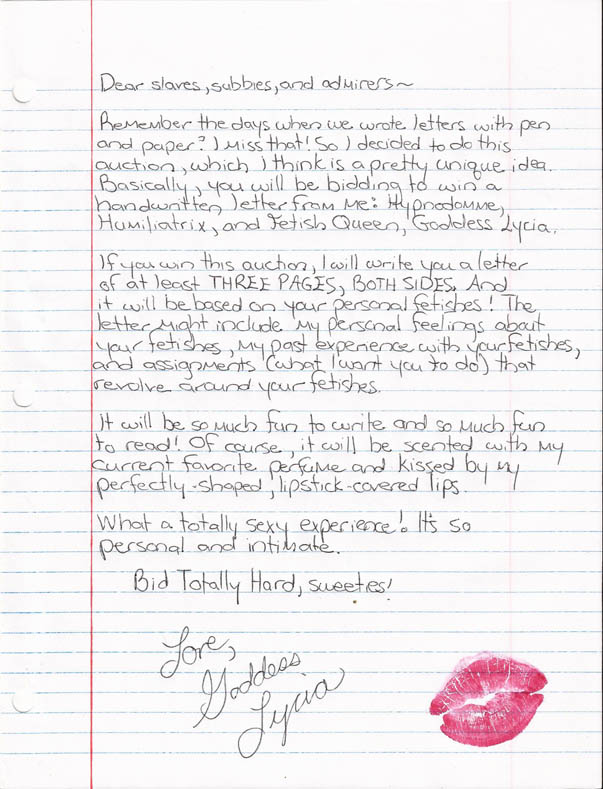 Dear slaves, subbies, and admirers~
Remember the days when we wrote letters with pen
and paper? I miss that! So I decided to do this
auction, which I think is a pretty unique idea.
Basically, you will be bidding to win a
handwritten letter from me: Hypnodomme,
Humiliatrix, and Fetish Queen, Goddess Lycia.
If you win this auction, I will write you a letter
of at least THREE PAGES, BOTH SIDES. And
it will be based on your personal fetishes! The
letter might include my personal feelings about
your fetishes, my past experience with your fetishes,
and assignments (what I want you to do) that
revolve around your fetishes.
It will be so much fun to write and so much fun
to read! Of course, it will be scented with my
current favorite perfume and kissed by my
perfectly-shaped, lipstick-covered lips.
What a totally sexy experience! It's so
personal and intimate.
Bid Totally Hard, sweeties!
Love,
Goddess
Lycia